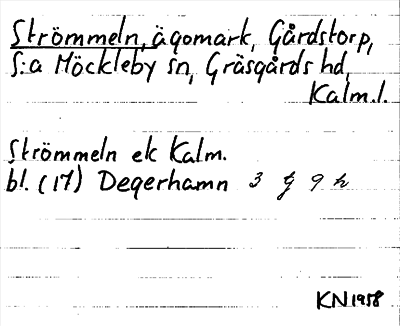 Strömmeln, ägomark, Gårdstorp,
S:a Möckleby sn, Gräsgårds hd,
Kalm.l.
Strömmeln ek Kalm.
bl. (17) Degerhamn 3 g 9 h
KN 1958